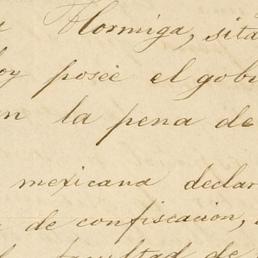 Hormiga, sita
hoy posée el gobi
en la pena de
mexicana declar
de confiscacion,
facultad de